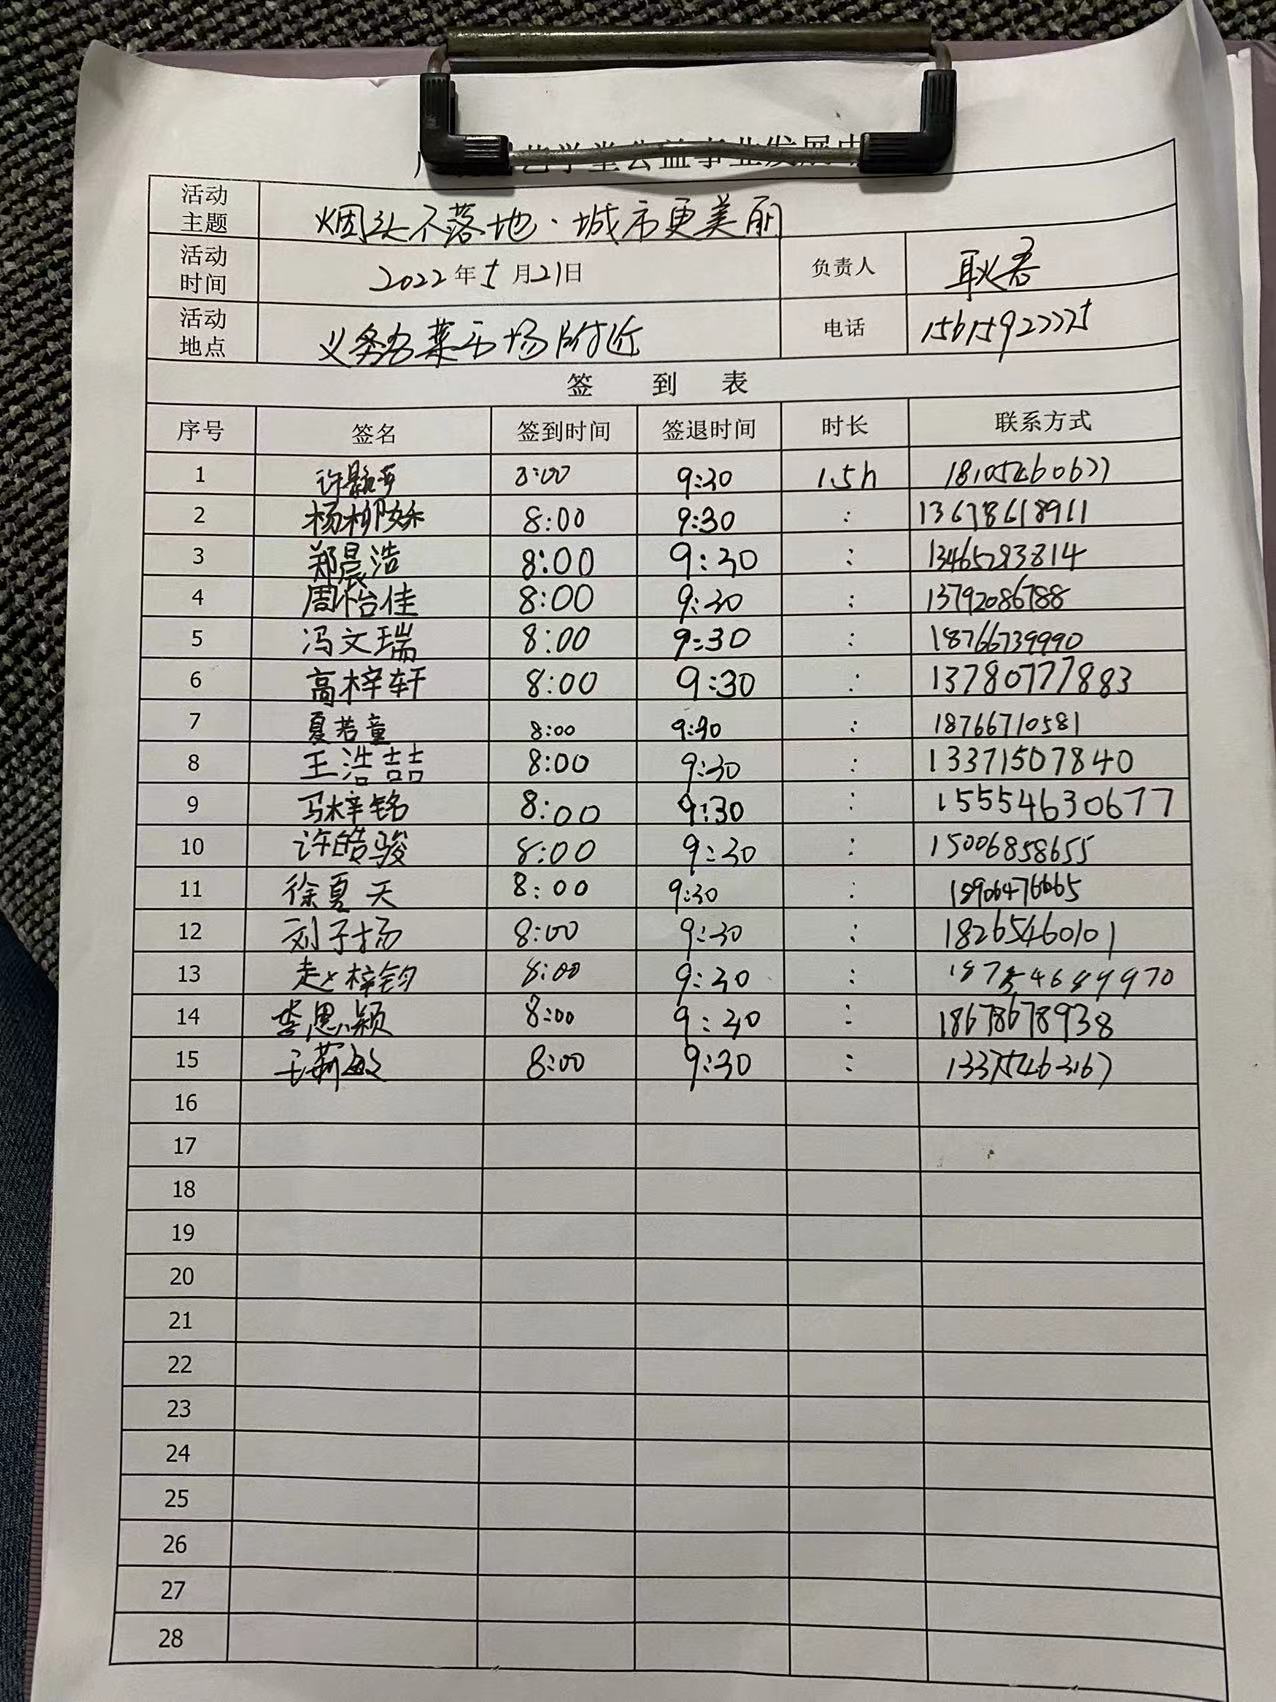 艺学堂公益事业发展中
活动主题 烟头不落地·城市更美丽
活动时间 2022年5月21日 负责人 耿
活动地点 义务 菜市场附近 电话 15615922225
签 到 表
序号 签名 签到时间 签退时间 时长 联系方式
1 许 8:00 9:30 1.5h 18105460677
2 杨柳 8:00 9:30 : 13678618911
3 郑晨浩 8:00 9:30 : 13465293814
4 周怡佳 8:00 9:30 : 13792086788
5 冯文瑞 8:00 9:30 : 18766739990
6 高梓轩 8:00 9:30 : 13780777883
7 夏若童 8:00 9:30 : 18766710581
8 王浩喆 8:00 9:30 : 13371507840
9 马梓铭 8:00 9:30 : 15554630677
10 许皓骏 8:00 9:30 : 15006858655
11 徐夏天 8:00 9:30 : 18906476665
12 刘子扬 8:00 9:30 : 18265460101
13 赵梓钧 8:00 9:30 :
14 李思颖 8:00 9:30 : 18678678938
15 王 敏 8:00 9:30 : 13375463167
16
17
18
19
20
21
22
23
24
25
26
27
28